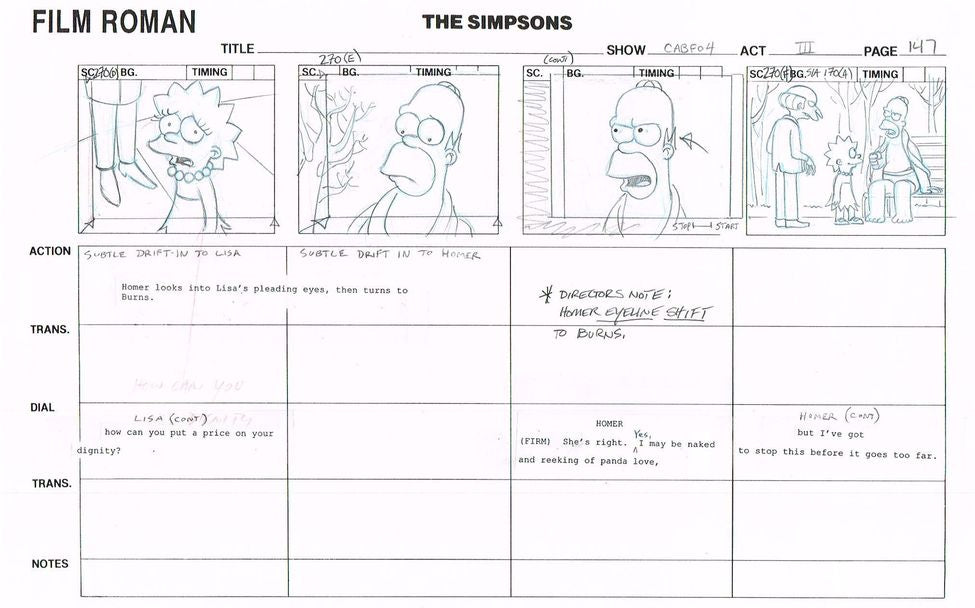 FILM ROMAN
THE SIMPSONS
TITLE SHOW CABF04 ACT III PAGE 147
270(E) (CONT)
SC. BG. TIMING SC. BG. TIMING SC. BG. TIMING SC. 270(F) BG. S/A 170(A) TIMING
STOP START
ACTION SUBTLE DRIFT-IN TO LISA SUBTLE DRIFT IN TO HOMER
Homer looks into Lisa's pleading eyes, then turns to
Burns.
* DIRECTORS NOTE:
HOMER EYELINE SHIFT
TO BURNS.
TRANS.
HOW CAN YOU
DIAL
LISA (CONT)
how can you put a price on your
dignity?
HOMER
Yes,
(FIRM) She's right. I may be naked
and reeking of panda love,
HOMER (CONT)
but I've got
to stop this before it goes too far.
TRANS.
NOTES